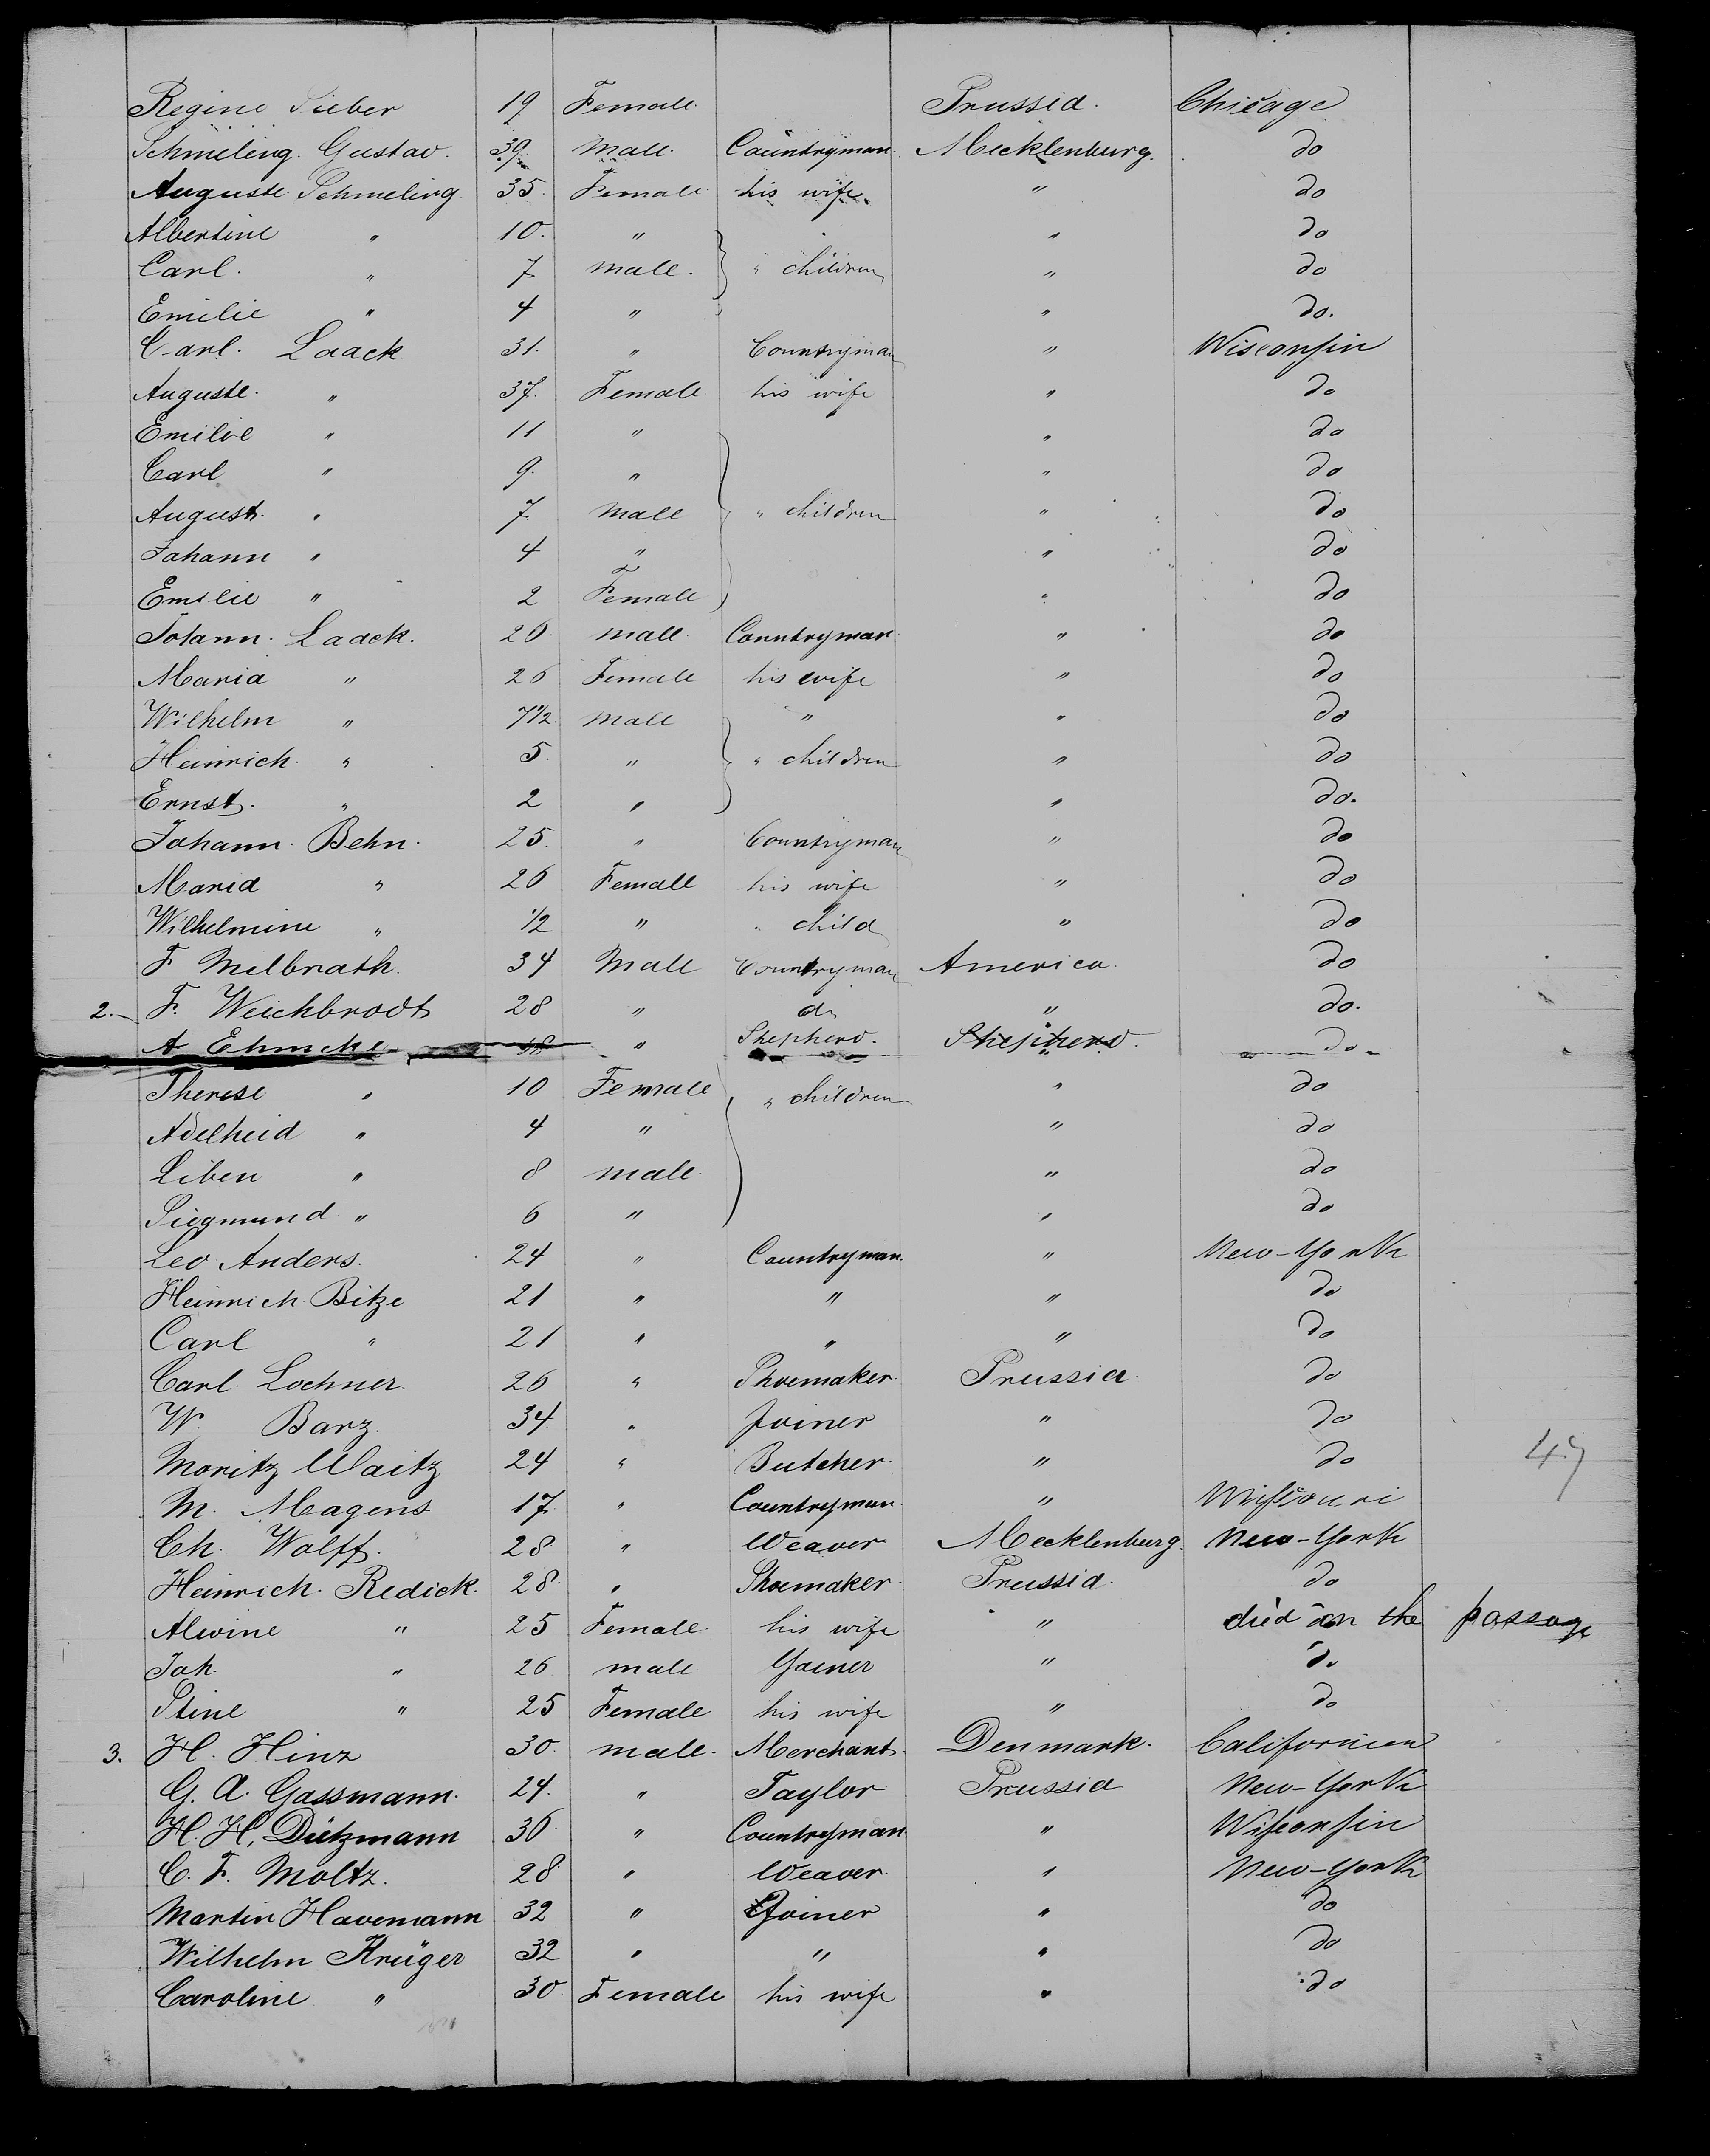 Regine Sieber 19 Female Prussia. Chicago
Schmeling. Gustav. 39. Male. Countryman. Mecklenburg. do
Auguste Schmeling 35. Female his wife " do
Albertine " 10. " " do
Carl. " 7 male. " children " do
Emilie " 4 " " do.
Carl. Laack 31. " Countryman " Wisconsin
Auguste. " 37. Female his wife " do
Emilie " 11 " " do
Carl " 9. " " do
August. " 7 Male " children " do
Johann " 4 " " do
Emilie " 2 Female " do
Johann. Laack. 26 male. Countryman " do
Maria " 26 Female his wife " do
Wilhelm " 7 1/2 Male " " do
Heinrich. " 5. " " children " do
Ernst. " 2 " " do.
Johann. Behn. 25. " Countryman " do
Maria " 26 Female his wife " do
Wilhelmine " 1/2 " " child " do
F Milbrath. 34 Male Countryman America. do
2. F. Weichbrodt 28 " do " do.
A Ehmcke 48 " Shepherd. Shepherd. do
Therese " 10 Female " children " do
Adelheid " 4 " " do
Liben " 8 male " do
Siegmund " 6 " " do
Leo Anders. 24 " Countryman. " New-York
Heinrich Bitze 21 " " " do
Carl " 21 " " " do
Carl Lochner. 26 " Shoemaker. Prussia. do
W. Barz. 34. " Joiner " do
Moritz Waitz 24 " Butcher. " do
47
M. Magens. 17 " Countryman. " Missouri
Ch. Wolff. 28 " Weaver Mecklenburg. New-York
Heinrich. Redick. 28. " Shoemaker. Prussia. do
Alwine " 25 Female his wife " died on the passage
Joh. " 26 male Joiner " do
Stine " 25 Female his wife " do
3. H. Hinz 30. male. Merchant. Denmark. Californien
G. A. Gassmann. 24. " Taylor Prussia New-York
H. H. Dietzmann 36 " Countryman " Wisconsin
C. F. Moltz. 28 " Weaver. " New-York
Martin Havemann 32 " Joiner " do
Wilhelm Krüger 32 " " " do
Caroline " 30 Female his wife " do